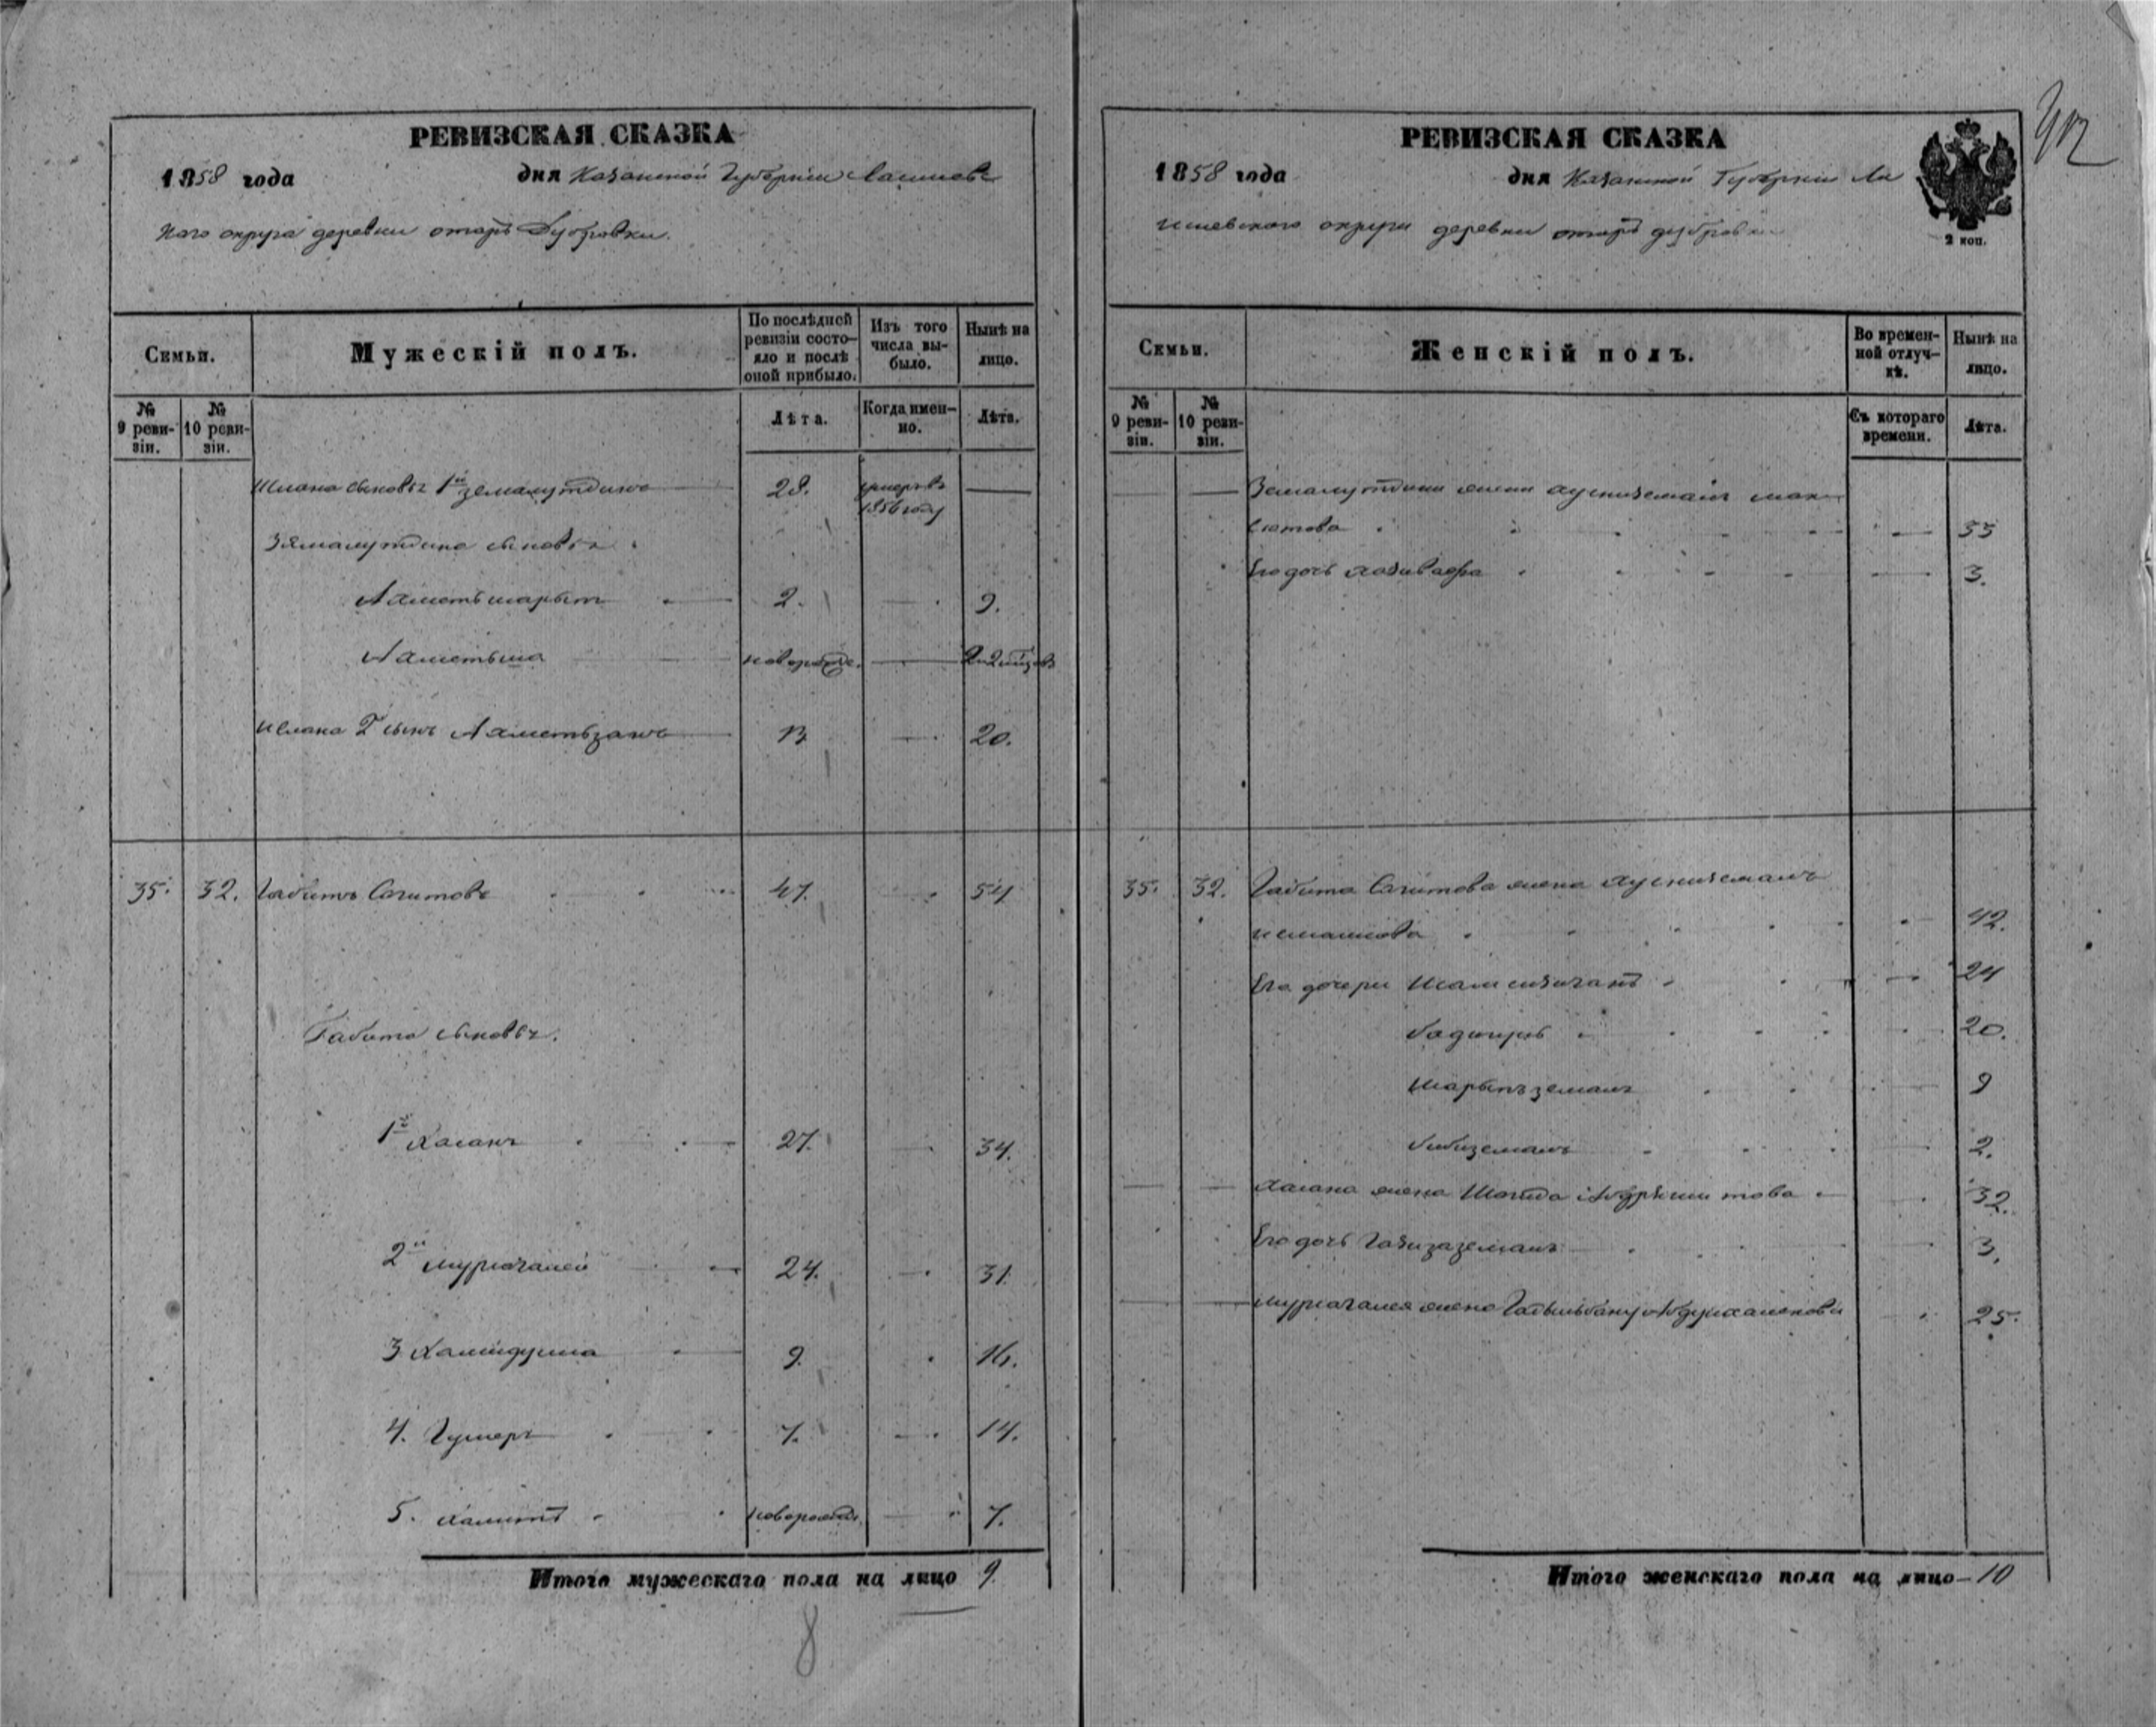 РЕВИЗСКАЯ СКАЗКА
1858 года дня Казанской Губернии Лаишевс
каго округа деревни отаръ Дубровки.
Семьи.
Мужескій полъ.
По послѣдней ревизіи состояло и послѣ оной прибыло.
Изъ того числа выбыло.
Нынѣ на лицо.
№ 9 ревизіи.
№ 10 ревизіи.
Лѣта.
Когда именно.
Лѣта.
сыновья 1й Земалутдинъ 28. умеръ въ 1856 году —
Зямалутдина сыновья
Ахметьшарыт 2. — 9.
Ахметьша новорожде. —
2 сынъ Ахметьзянъ 13 — 20.
35. 32. Габитъ Сагитовъ 47. — 54
Габита сыновья.
1й Хасанъ 27. — 34.
2й Муртагалей 24. — 31.
3 Хамидулла 9. 16.
4. Гумеръ 7. — 14.
5. Халитъ новорожде. — 7.
Итого мужескаго пола на лицо 9.
8
РЕВИЗСКАЯ СКАЗКА
1858 года дня Казанской Губернии Ла
ишевского округи деревни отаръ дубровки
2 коп.
Семьи.
Женскій полъ.
Во временной отлучкѣ.
Нынѣ на лицо.
№ 9 ревизіи.
№ 10 ревизіи.
Съ котораго времени.
Лѣта.
Земалутдина жена Хусниземанъ
сютова — 35
Его дочь — 3.
35. 32. Габита Сагитова жена Хусниземанъ
42.
Его дочери — 24
Бадигулъ 20.
Шарыпъземанъ 9
Бибиземанъ 2.
Хасана жена 32.
Его дочь Газизаземанъ 3.
Муртагалея жена 25.
Итого женскаго пола на лицо — 10